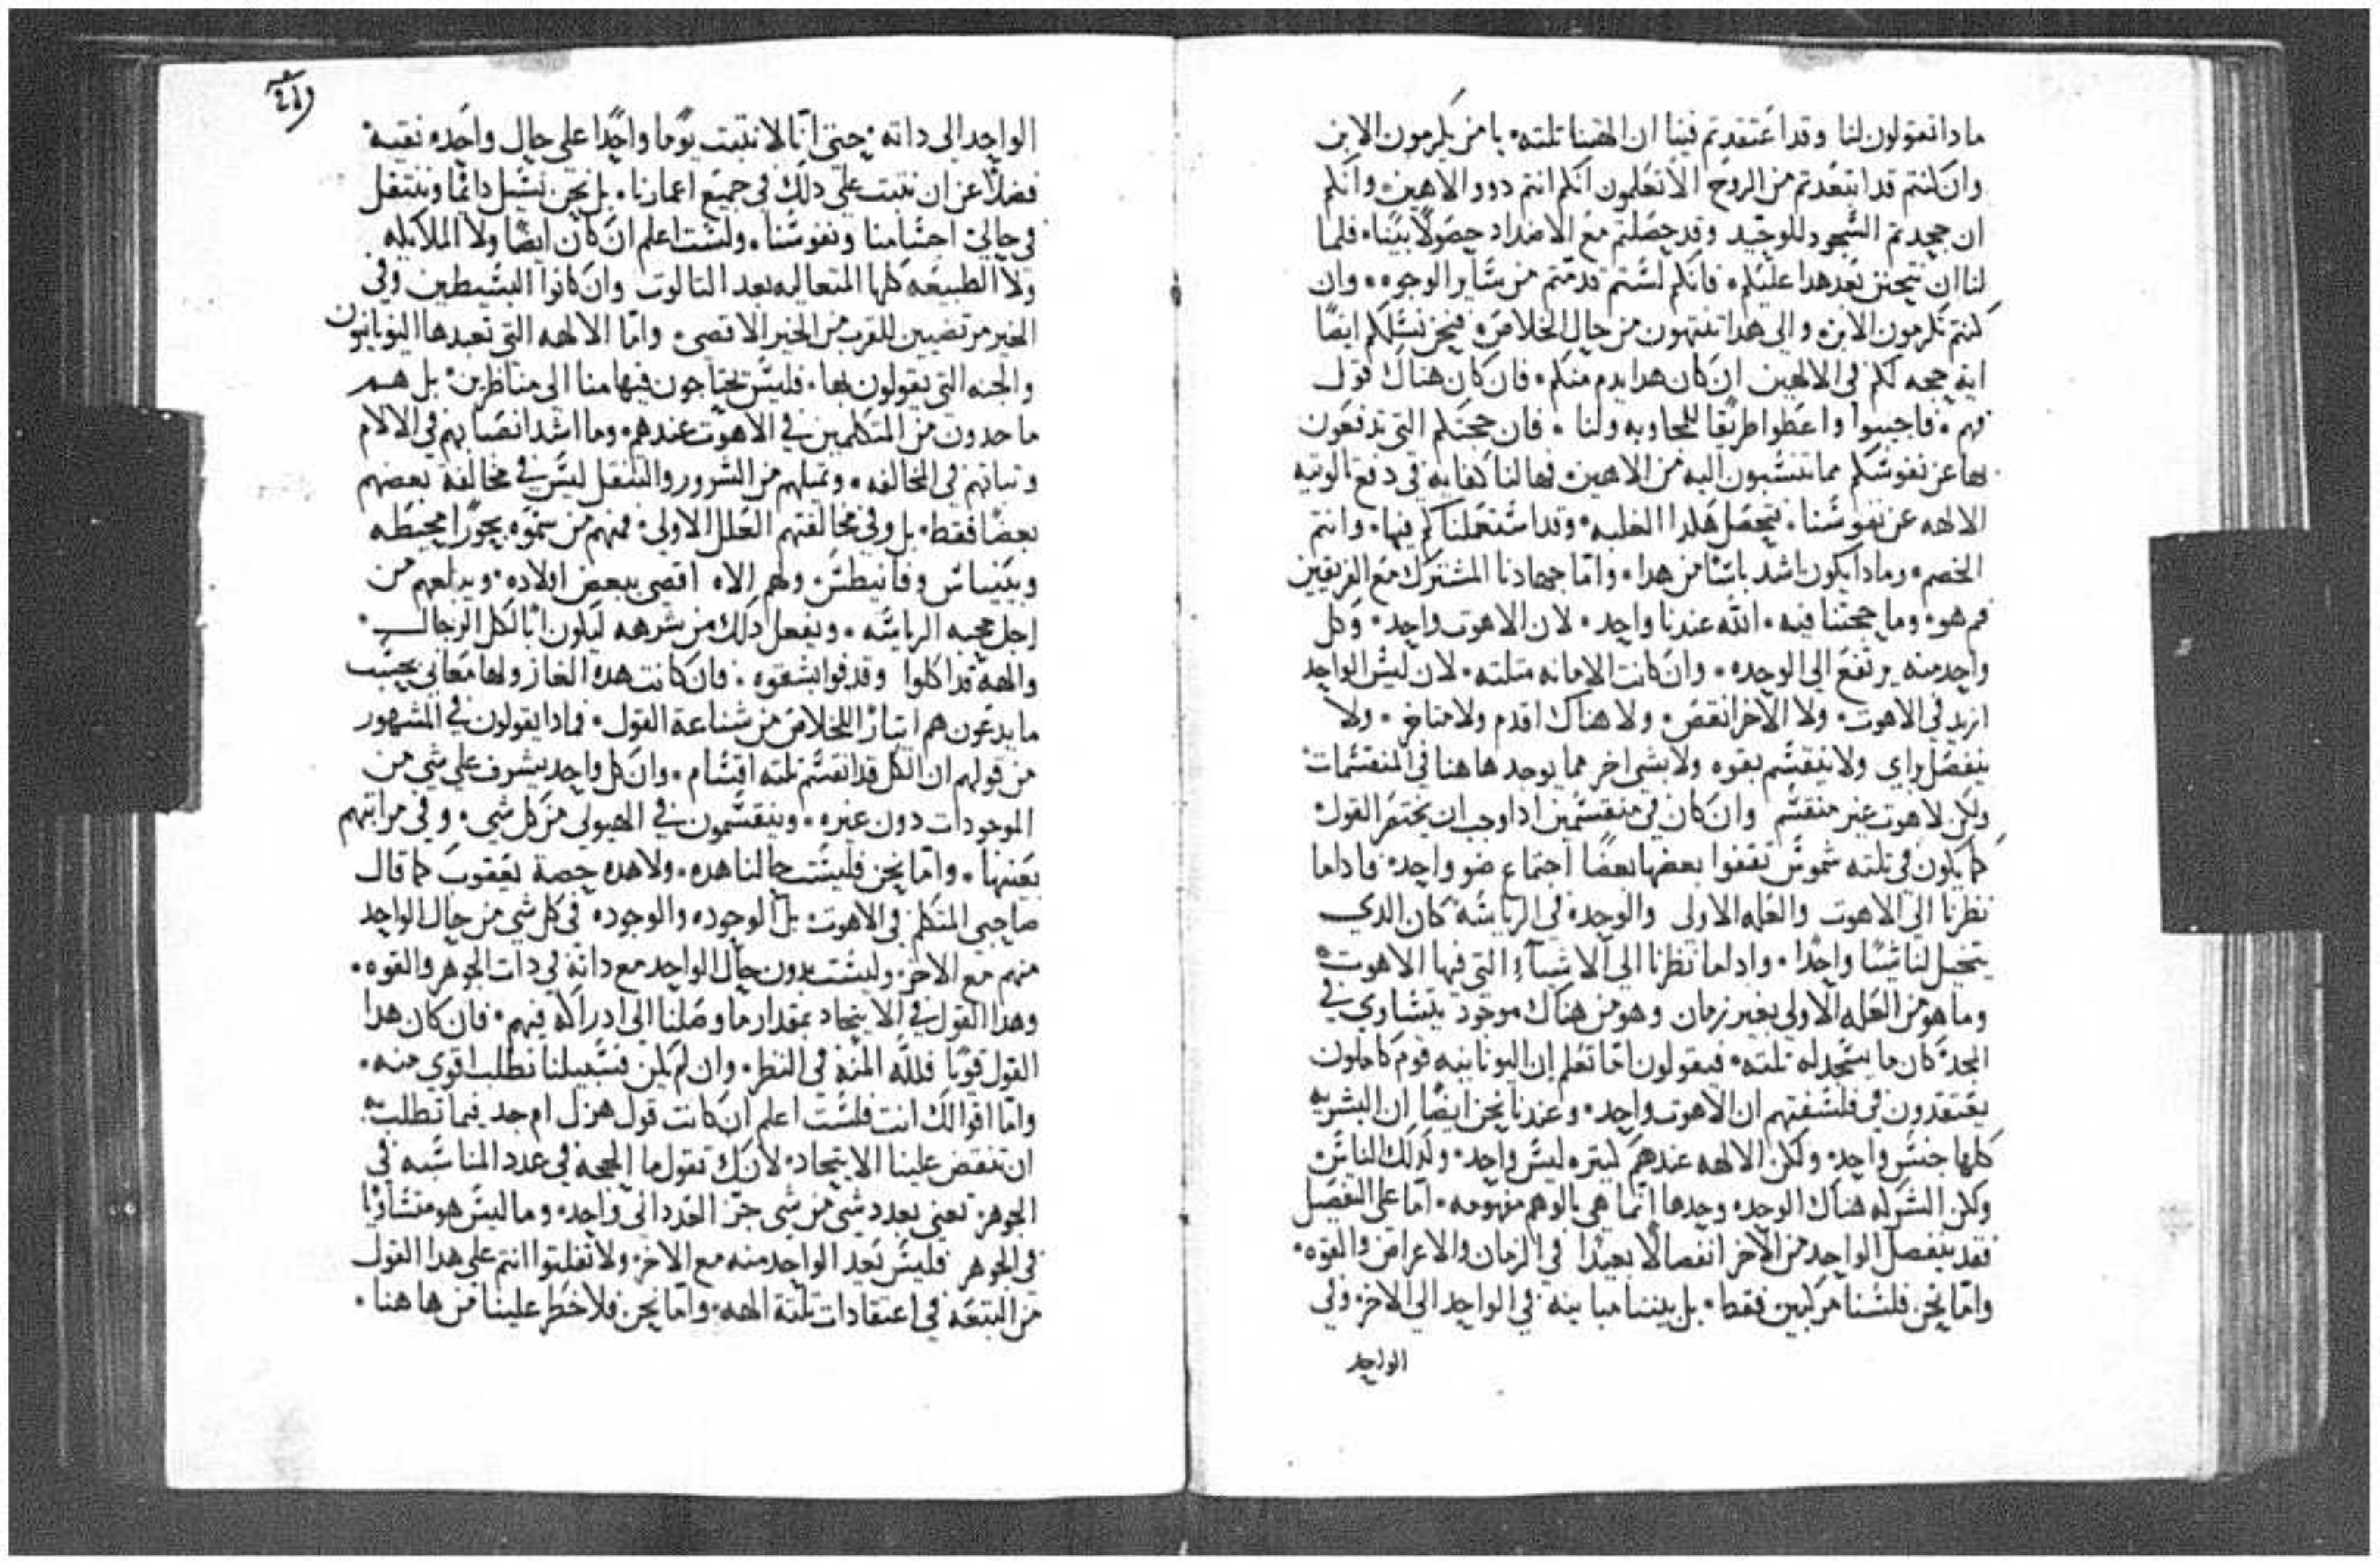 مادا تقولون لنا وقد اعتقدتم فينا ان الهنا تلته. يا من يكرمون الابن
وان كنتم قد ابتعدتم من الروح الا تعلمون انكم انتم دوو الاهين. وانكم
ان جحدتم السجود للوحيد وقد حصلتم مع الاضداد حصولاً بينا. فلما
لنا ان نتحنن بعد هدا عليكم. فانكم لستم تدمتم من ساير الوجوه. وان
كنتم تكرمون الابن. والي هدا تنتهون من حال الخلاص. فنحن نسلكم ايضًا
ايه حجه لكم في الالهين ان كان هدا يدم منكم. فان كان هناك قول
فهم. فاجيبوا واعطوا طريقا للمجاوبه ولنا. فان حجتكم التي تدفعون
بها عن نفوسكم مما تنسبون اليه من الاهين. فيها لنا كفايه في دفع الوتيه
الالهه عن نفوسنا. فتحصل هكدا الغلبه. وقد استعملناكم فيها. وانتم
الخصم. ومادا يكون اشد باسًا من هدا. وامّا جهادنا المشترك مع الفريقين
فم هو. وما حجتنا فيه. الله عندنا واحد. لان الاهوت واحد. وكل
واحد منه يرتفع الي الوحده. وان كانت الامانه متلته. لان ليس الواحد
ازيد في الاهوت. ولا الاخر انقص. ولا هناك اقدم ولا متاخر. ولا
ينفصل براي ولا ينقسم بقوه ولا بشي اخر مما يوجد هاهنا في المنقسمات.
ولكن لاهوت غير منقسم وان كان في منقسمين ادا وجب ان يختصر القول
كما يكون في تلته شموس تقفوا بعضها بعضًا اجتماع ضو واحد. فاداما
نظرنا الي الاهوت والعله الاولى والوحده في الرياسه كان الدي
يتخيل لنا شيًا واحدًا. واداما نظرنا الي الاشياء التي فيها الاهوت
وما هو من العله الاولي بغير زمان وهو من هناك موجود يتساوي في
المجد كان ما يسجد له تلته. فيقولون امّا تعلم ان اليونانيه قوم كاملون
يعتقدون في فلسفتهم ان الاهوت واحد. وعندنا نحن ايضًا ان البشريه
كلها جنس واحد. ولكن الالهه عندهم كتيره ليس واحد. وكدلك الناس.
ولكن الشركه هناك الوحده وحدها انما هي بالوهم مفهومه. امّا على التفصيل
فقد ينفصل الواحد من الاخر انفصالا بعيدًا في الزمان والاعراض والقوه.
وامّا نحن فلسنا مركبين فقط. بل بيننا مباينه في الواحد الي الاخر. وفي
الواحد
الواحد الي داته. حتي انّا لا نتبت يومًا واحدًا علي حال واحده نقيه.
فضلًا عن ان نتبت علي دلك في جميع اعمارنا. بل نحن نسيل دائمًا وننتقل
في حالي اجسامنا ونفوسنا. ولست اعلم ان كان ايضًا ولا الملايكه
ولا الطبيعه كلها المتعاليه بعد التالوت وان كانوا البسيطين وفي
الخير مرتضيين للقرب من الخير الاقصي. وامّا الالهه التي تعبدها اليونانيون
والجنه التي يقولون بها. فليس تحتاجون فيها منا الي مناظرين. بل هم
ماخدون من المتكلمين في الاهوت عندهم. وما اشد انصبابهم في الالام
وتباتهم في المخالفه. وتميلهم من الشرور والتنقل ليس في مخالفة بعضهم
بعضًا فقط. بل وفي مخالفتهم العلل الاولي. فمنهم من سموه بحورًا محيطه
ولهم الاه اقصي يبغض اولاده. ويبلعهم من
اجل محبه الرياسه. ويفعل دلك من شرهه ليكون ابًا لكل الرجال.
والهة قد اكلوا وقدفوا بشقوه. فان كانت هده الغاز ولها معاني بحسب
ما يدعون هم ايتارًا للخلاص من شناعة القول. فمادا يقولون في المشهور
من قولهم ان الكل قد انقسم تلته اقسام. وان كل واحد يشرف علي شي من
الموجودات دون غيره. وينقسمون في الهيولي من كل شي. وفي مراتبهم
بعينها. وامّا نحن فليست حالنا هده. ولا هده حصة يعقوب كما قال
صاحبي المتكلم في الاهوت. بل الوحده والوجوده في كل شي من حال الواحد
منهم مع الاخر. وليست بدون حال الواحد مع داته في دات الجوهر والقوه.
وهدا القول في الايتحاد بمقدار ما وصلنا الي ادراكه فيهم. فان كان هدا
القول قويًا فلله المنه في النظر. وان لم يكن فسبيلنا نطلب اقوي منه.
وامّا اقوالك انت فلست اعلم ان كانت قول هزل ام جد فيما تطلب به
ان تنقض علينا الايتحاد. لانك تقول ما الحجه في عدد المناسبه في
الجوهر. تعني بعدد شي من شي جر العدد الي واحده. وما ليس هو متساويا
في الجوهر فليس يعد الواحد منه مع الاخر. ولا تفلتوا انتم علي هدا القول
من التبعه في اعتقادات تلتة الهه. وامّا نحن فلا خطر علينا من هاهنا.